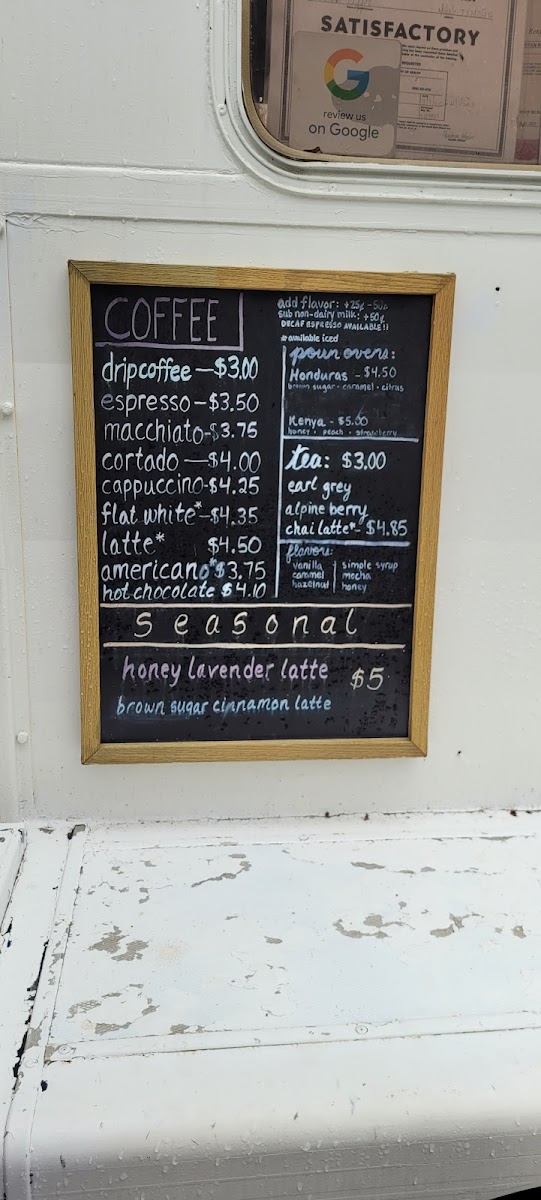 SATISFACTORY
review us
on Google
COFFEE
drip coffee — $3.00
espresso - $3.50
macchiato - $3.75
cortado — $4.00
cappuccino - $4.25
flat white* - $4.35
latte* $4.50
americano* $3.75
hot chocolate $4.10
add flavor: +25¢ - 50¢
sub non-dairy milk: +50¢
DECAF ESPRESSO AVAILABLE!!
* available iced
pour overs:
Honduras - $4.50
brown sugar · caramel · citrus
Kenya - $5.00
honey · peach · strawberry
tea: $3.00
earl grey
alpine berry
chai latte* - $4.85
flavors:
vanilla
caramel
hazelnut
simple syrup
mocha
honey
Seasonal
honey lavender latte $5
brown sugar cinnamon latte